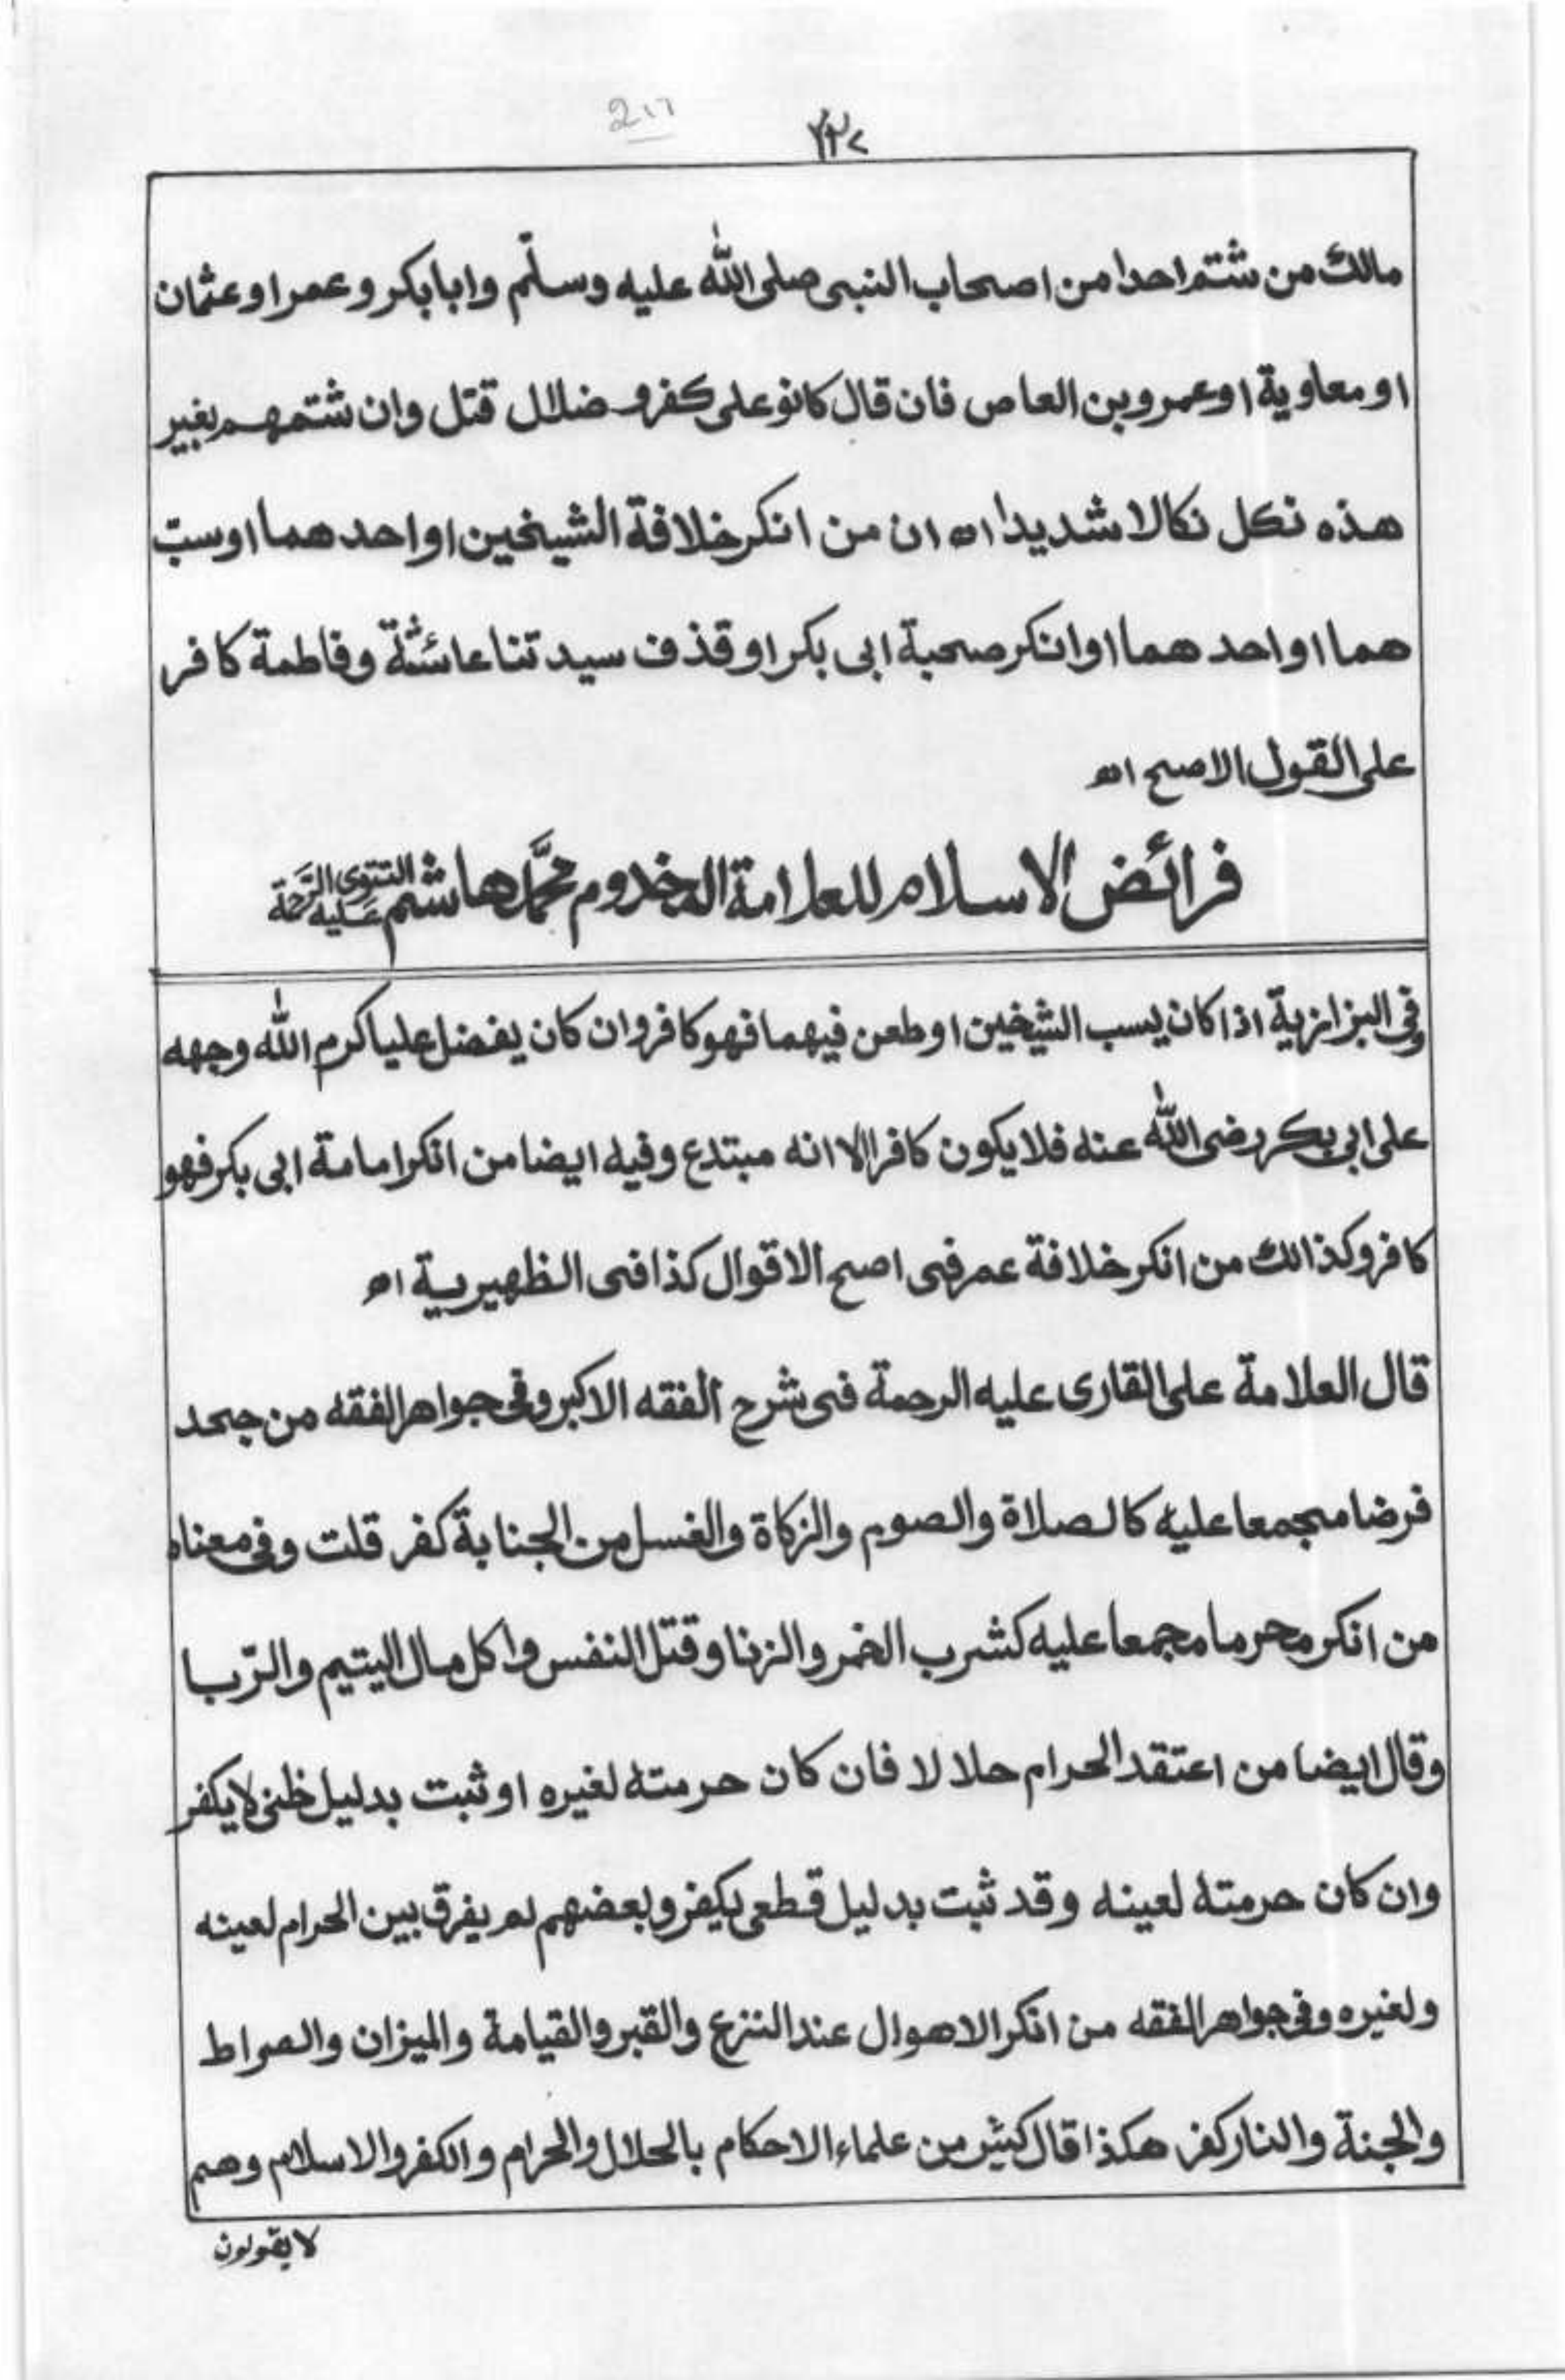 ۲۳۷
مالك من شتم احدا من اصحاب النبى صلى الله عليه وسلّم وابابكر و عمر او عثمان
او معاوية او عمرو بن العاص فان قال كانو على كفر و ضلال قتل وان شتمهم بغير
هذه نكل نكالا شديدا اه ان من انكر خلافة الشيخين او احدهما او سبّ
هما او احد هما او انكر صحبة ابى بكر او قذف سيدتنا عائشة و فاطمة كافر
على القول الاصح اه
فرائض الاسلام للعلامة المخدوم محمّد هاشم التتوى عليه الرحمة
وفى البزازية اذا كان يسب الشيخين او طعن فيهما فهو كافر وان كان يفضل عليا كرم الله وجهه
على ابى بكر رضى الله عنه فلا يكون كافرا الا انه مبتدع وفيه ايضا من انكر امامة ابى بكر فهو
كافر وكذالك من انكر خلافة عمر فى اصح الاقوال كذا فى الظهيرية اه
قال العلامة على القارى عليه الرحمة فى شرح الفقه الاكبر وفى جواهر الفقه من جحد
فرضا مجمعا عليه كالصلاة والصوم والزكاة والغسل من الجنابة كفر قلت وفى معناه
من انكر محرما مجمعا عليه كشرب الخمر والزنا وقتل النفس واكل مال اليتيم والرّبا
وقال ايضا من اعتقد الحرام حلالا فان كان حرمته لغيره او ثبت بدليل ظنى لا يكفر
وان كان حرمته لعينه وقد ثبت بدليل قطعى يكفر وبعضهم لم يفرق بين الحرام لعينه
ولغيره وفى جواهر الفقه من انكر الاهوال عند النزع والقبر والقيامة والميزان والصراط
والجنة والنار كفر هكذا قال كثير من علماء الاحكام بالحلال والحرام والكفر والاسلام وهم
لا يقولون